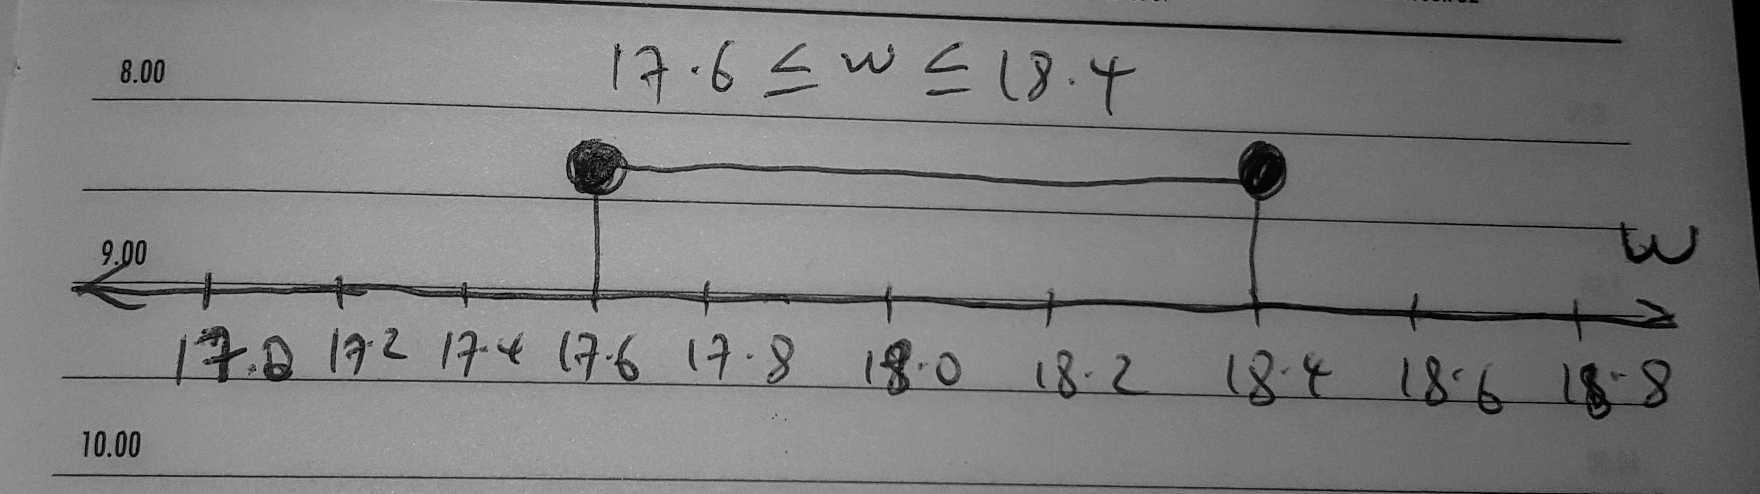 8.00
17.6 ≤ w ≤ 18.4
9.00
W
17.0 17.2 17.4 17.6 17.8 18.0 18.2 18.4 18.6 18.8
10.00